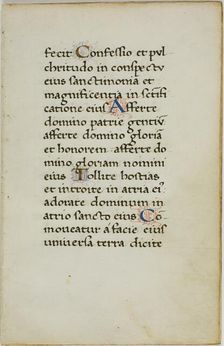 fecit Confessio et pul
chritudo in conspectu
eius sanctimonia et
magnificentia in sctifi
catione eius Afferte
domino patrie gentiū
afferte domino gloriā
et honorem afferte do
mino gloriam nomini
eius Tollite hostias
et introite in atria ei'
adorate dominum in
atrio sancto eius Co
moveatur a facie eius
universa terra dicite